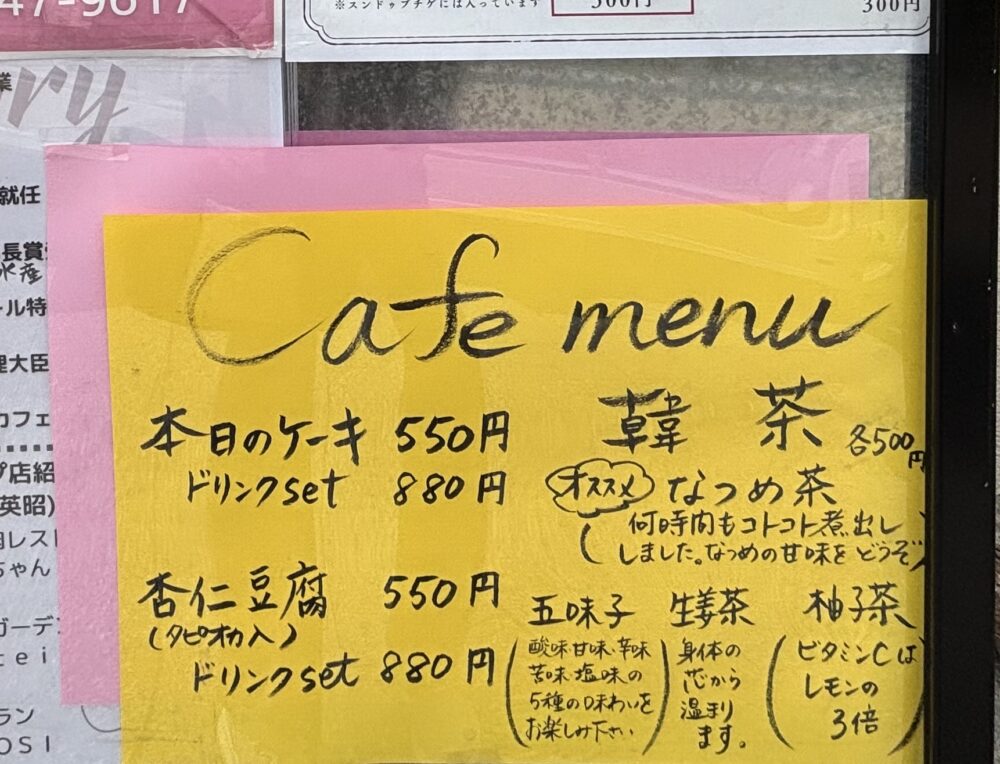 47-9617
※スンドゥブチゲには入っています
500円
300円
業
ry
就任
長賞
水産
ール特
理大臣
カフェ
プ店紹
英昭)
レスト
ちゃん
ガーデン
tei
ラン
OSI
Cafe menu
本日のケーキ 550円
ドリンクset 880円
杏仁豆腐 550円
(タピオカ入)
ドリンクset 880円
韓茶 各500円
オススメ なつめ茶
(何時間もコトコト煮出し
しました。なつめの甘味をどうぞ)
五味子
(酸味・甘味・辛味
苦味・塩味の
5種の味わいを
お楽しみ下さい)
生姜茶
身体の
芯から
温まり
ます。
柚子茶
(ビタミンCは
レモンの
3倍)